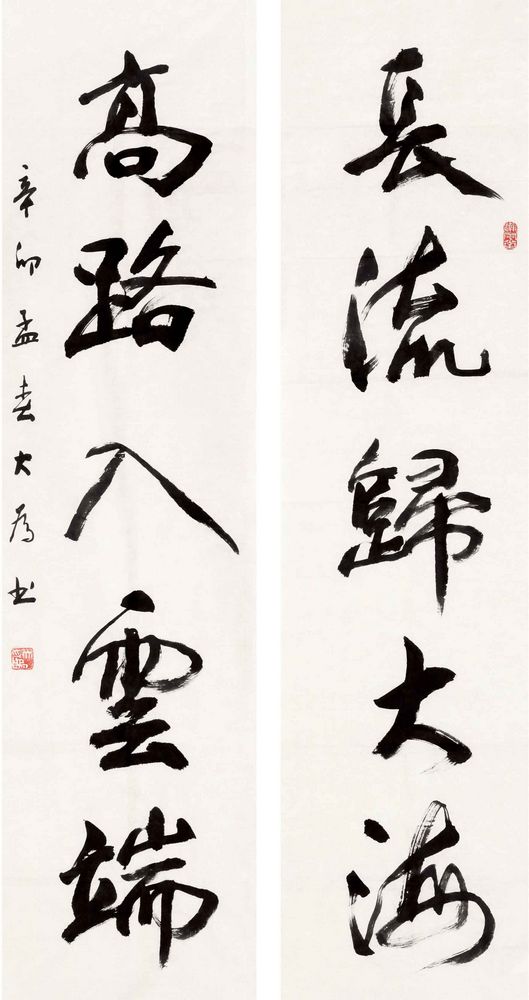 長流歸大海
高路入雲端
辛卯孟春大为书